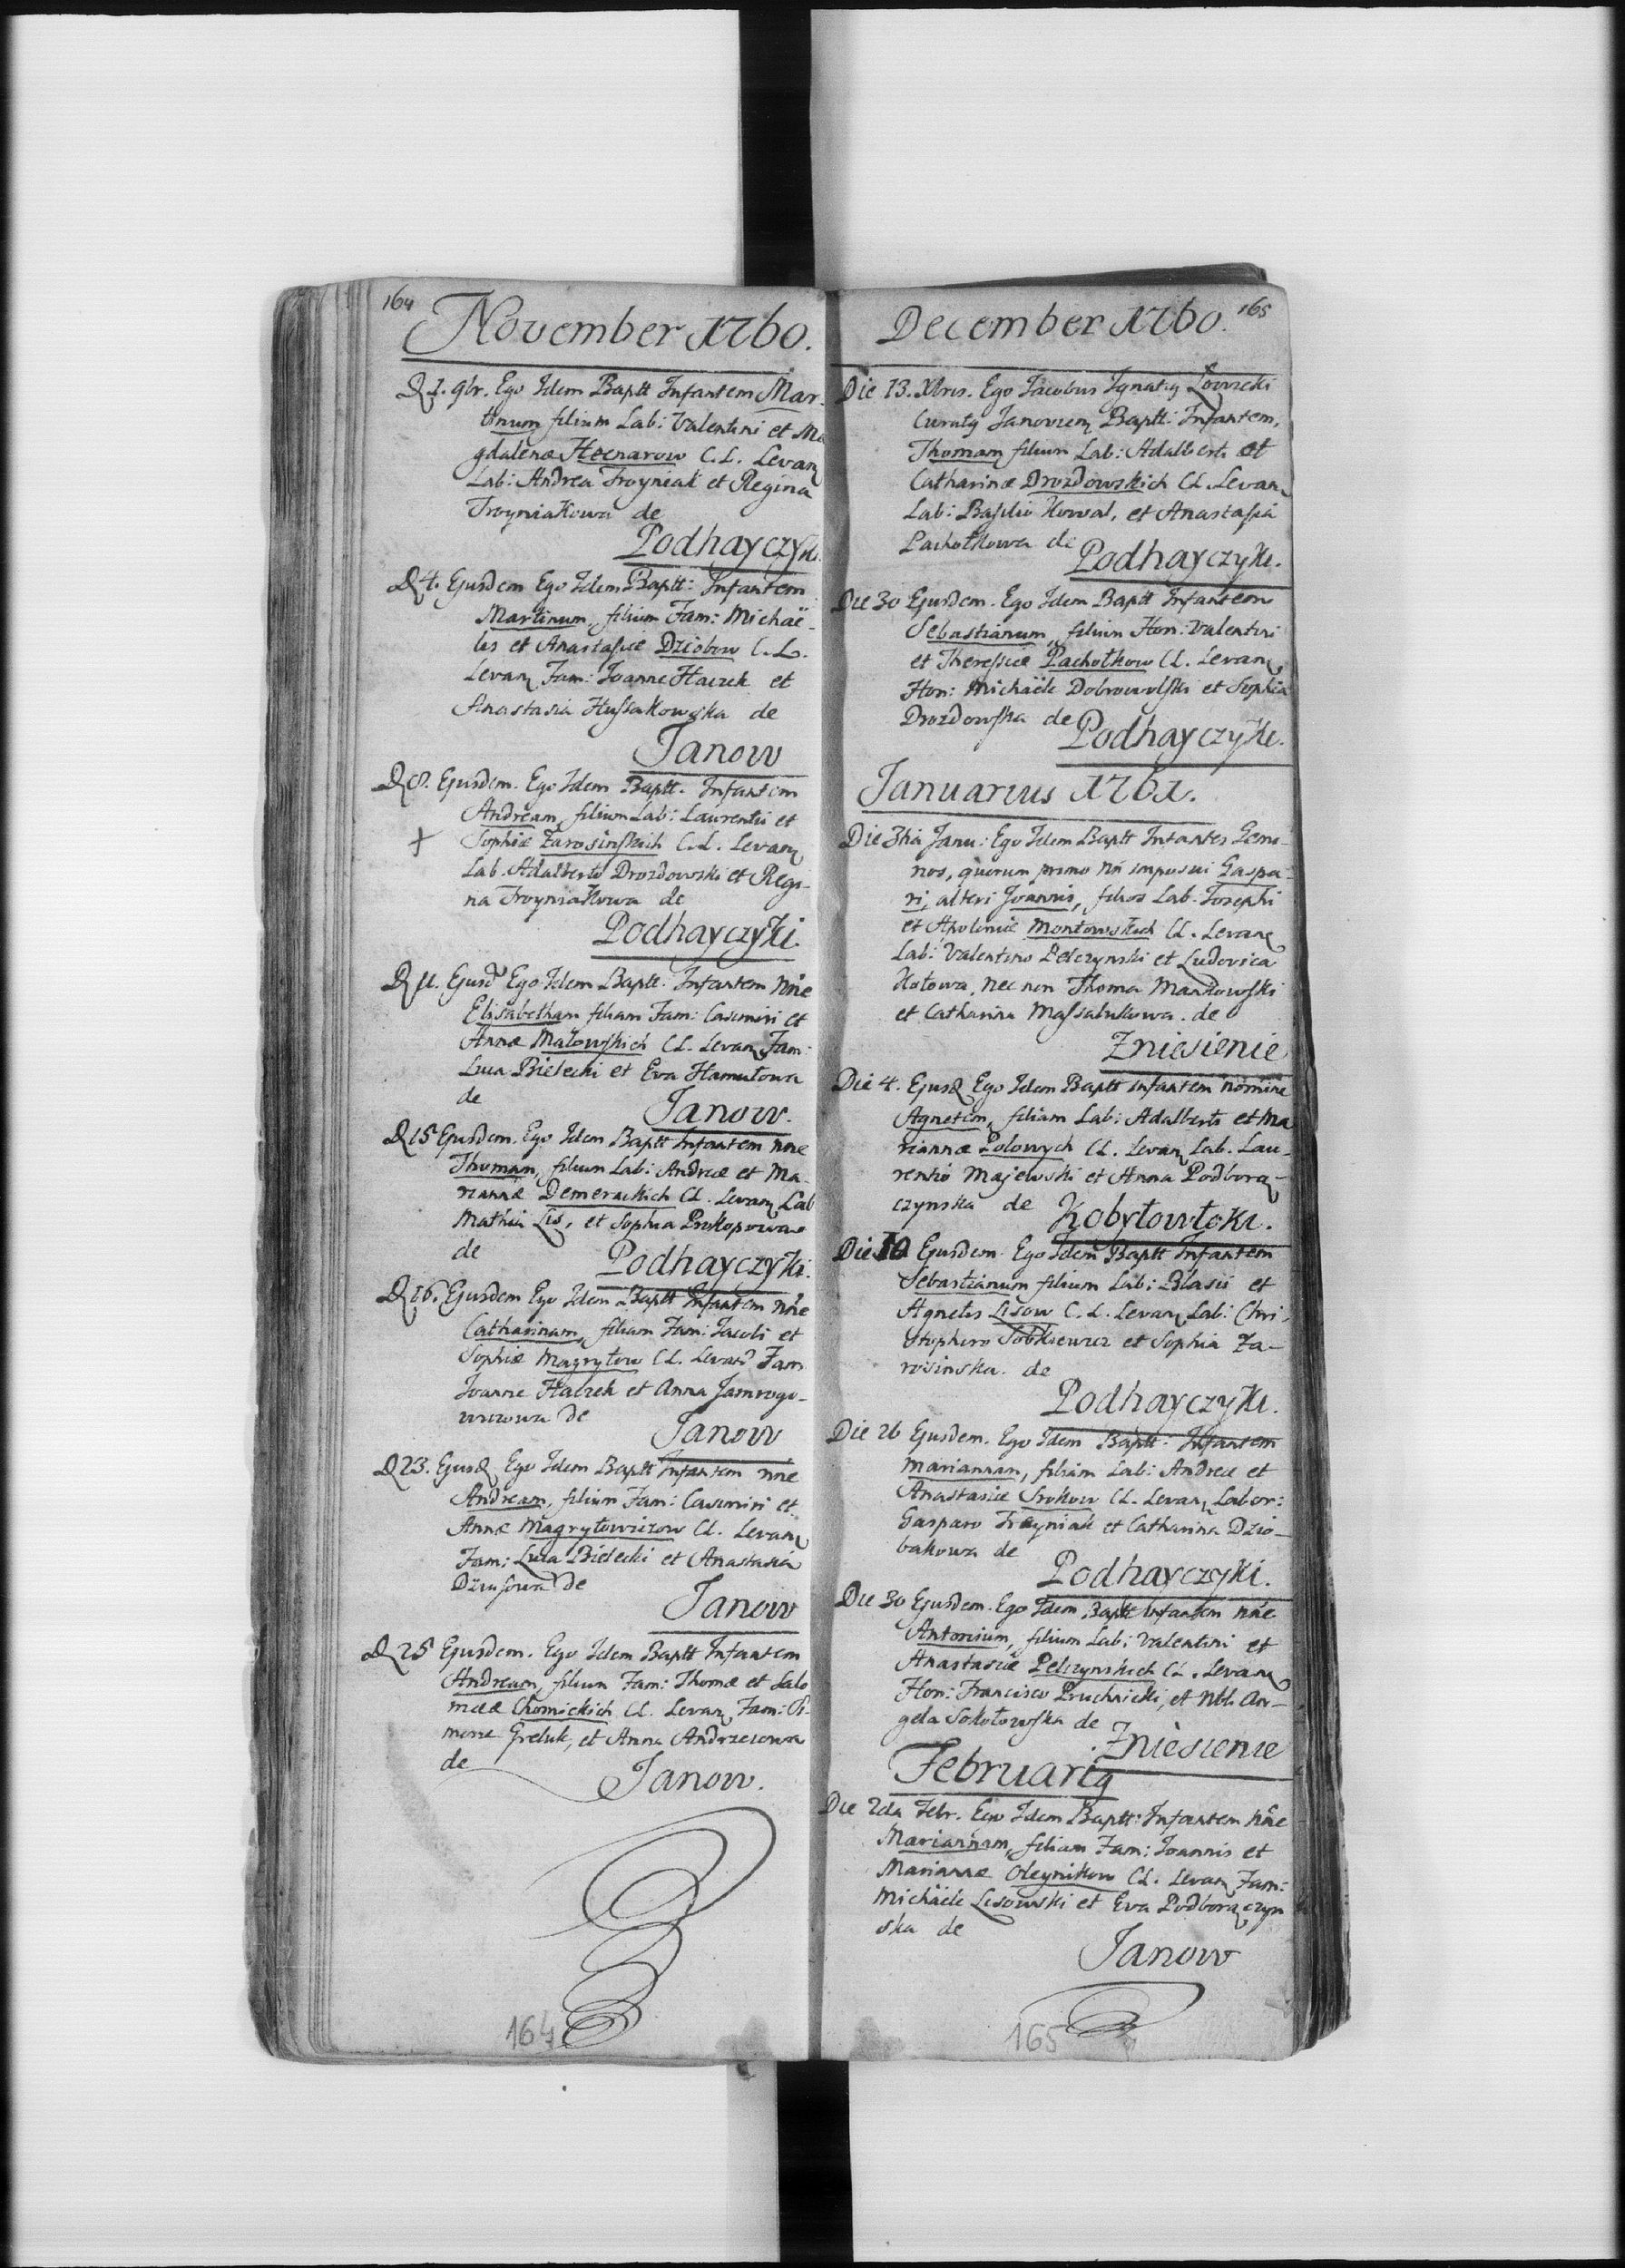 164
November 1760.
D 1. 9br. Ego Idem Baptt Infantem Mar-
tinum filium Lab: Valentini et Ma
gdalenæ Hecnarow C.L. Levan
Lab: Andrea Troyniak et Regina
Troyniakowa de
Podhayczyki.
D 4. Ejusdem Ego Idem Baptt: Infantem
Martinum, filium Fam: Michaë-
lis et Anastasiæ Dziobow C.L.
Levan Fam: Joanne Haczek et
Anastasia Hussakowska de
Janow
D 8. Ejusdem. Ego Idem Baptt. Infantem
Andream, filium Lab: Laurentii et
+ Sophiæ Zarosinskich C.L. Levan
Lab. Adalberto Drozdowski et Regi-
na Troyniakowa de
Podhayczyki.
D 11. Ejusd Ego Idem Baptt: Infantem nne
Elisabetham filiam Fam: Casimiri et
Annæ Małowskich CL. Levan Fam:
Luca Bielecki et Eva Hamułowa
de
Janow.
D 15 Ejusdem. Ego Idem Baptt Infantem nne
Thomam, filium Lab: Andreæ et Ma-
riannæ Demerackich CL. Levan Lab
Mathia Lis, et Sophia Prokopowa
de
Podhayczyki.
D 16. Ejusdem Ego Idem Baptt Infantem nne
Catharinam, filiam Fam: Jacobi et
Sophiæ Magrytow CL. Levan Fam
Joanne Haczek et Anna Jamrogo-
wiczowa de
Janow
D 23. Ejusd Ego Idem Baptt Infantem nne
Andream, filium Fam: Casimiri et
Annæ Magrytowiczow CL. Levan
Fam: Luca Bielecki et Anastasia
de
Janow
D 25 Ejusdem. Ego Idem Baptt Infantem
Andream, filium Fam: Thomæ et Salo
meæ Chomickich CL. Levan Fam: Si-
mone Greluk, et Anna Andrzeiowa
de
Janow.
164
165
December 1760.
Die 13. Xbris. Ego Jacobus Ignaty Łowicki
Curaty Janovien Baptt: Infantem,
Thomam filium Lab: Adalberti et
Catharinæ Drozdowskich CL. Levan
Lab: Basilio Kowal, et Anastasia
Pachołkowa de
Podhayczyki.
Die 30 Ejusdem. Ego Idem Baptt Infantem
Sebastianum, filium Hon. Valentini
et Theressiæ Pachołkow CL. Levan,
Hon: Michaële Dobrowolski et Sophia
Drozdowska de
Podhayczyki.
Januarius 1761.
Die 3tia Janu: Ego Idem Baptt Infantes Gemi-
nos, quorum primo nn imposui Gaspa-
ri, alteri Joannis, filios Lab: Josephi
et Apoloniæ Montowskich CL. Levan
Lab: Valentino Pelczynski et Ludovica
Kołowa, nec non Thoma Mankowski
et Catharina Massalukowa. de
Zniesienie
Die 4. Ejusd Ego Idem Baptt infantem nomine
Agnetem, filiam Lab: Adalberti et Ma
riannæ Polowych CL. Levan Lab. Lau-
rentio Majewski et Anna Podborą-
czynska de
Kobyłowłoki.
Die 10 Ejusdem. Ego Idem Baptt Infantem
Sebastianum filium Lab: Blasii et
Agnetis Lisow C.L. Levan Lab: Chri-
stophoro Sobkiewicz et Sophia Za-
rosinska. de
Podhayczyki.
Die 26 Ejusdem. Ego Idem Baptt: Infantem
Mariannam, filiam Lab: Andreæ et
Anastasiæ Srokow CL. Levan Labor:
Gasparo Trayniak et Catharina Dzio-
bakowa de
Podhayczyki.
Die 30 Ejusdem. Ego Idem Baptt Infantem nne
Antonium, filium Lab: Valentini et
Anastasiæ Pelczynskich CL. Levan
Hon: Francisco Pruchnicki, et Nbl. An-
gela Sokołowska de
Zniesienie
Februarig
Die 2da Febr. Ego Idem Baptt: Infantem nne
Mariannam, filiam Fam: Joannis et
Mariannæ Oleynikow CL. Levan Fam:
Michaële Lisowski et Eva Podborączyn
ska de
Janow
165